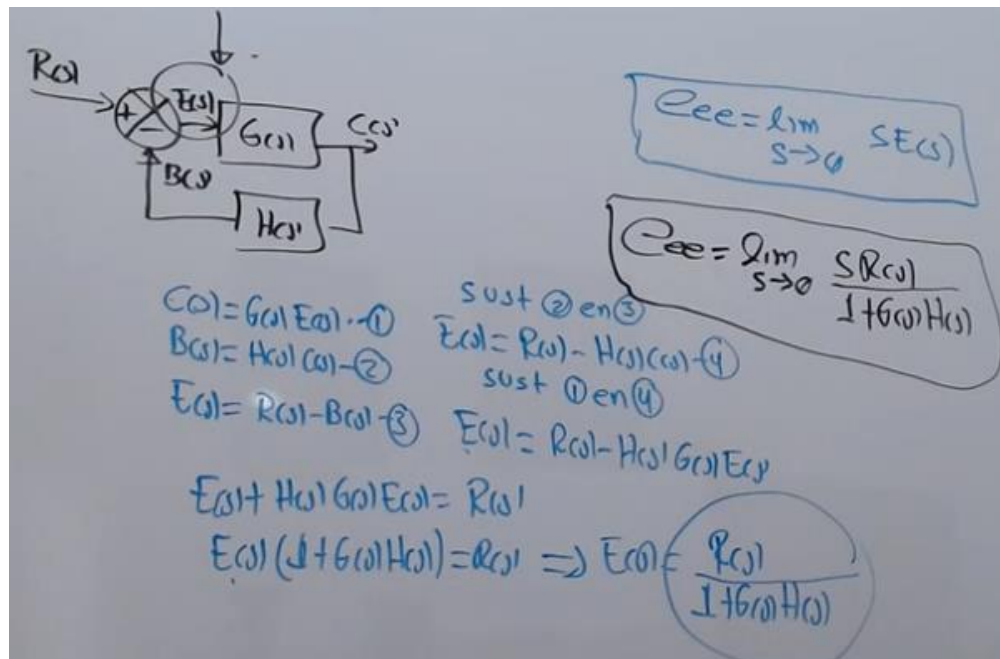 R(s)
E(s)
G(s)
C(s)
B(s)
H(s)
+
−
eee = lim s→0 SE(s)
eee = lim s→0 SR(s) / 1+G(s)H(s)
C(s) = G(s)E(s) -- ①
B(s) = H(s)C(s) - ②
E(s) = R(s) - B(s) - ③
sust ② en ③
E(s) = R(s) - H(s)C(s) - ④
sust ① en ④
E(s) = R(s) - H(s)G(s)E(s)
E(s) + H(s)G(s)E(s) = R(s)
E(s)(1+G(s)H(s)) = R(s) => E(s) = R(s) / 1+G(s)H(s)